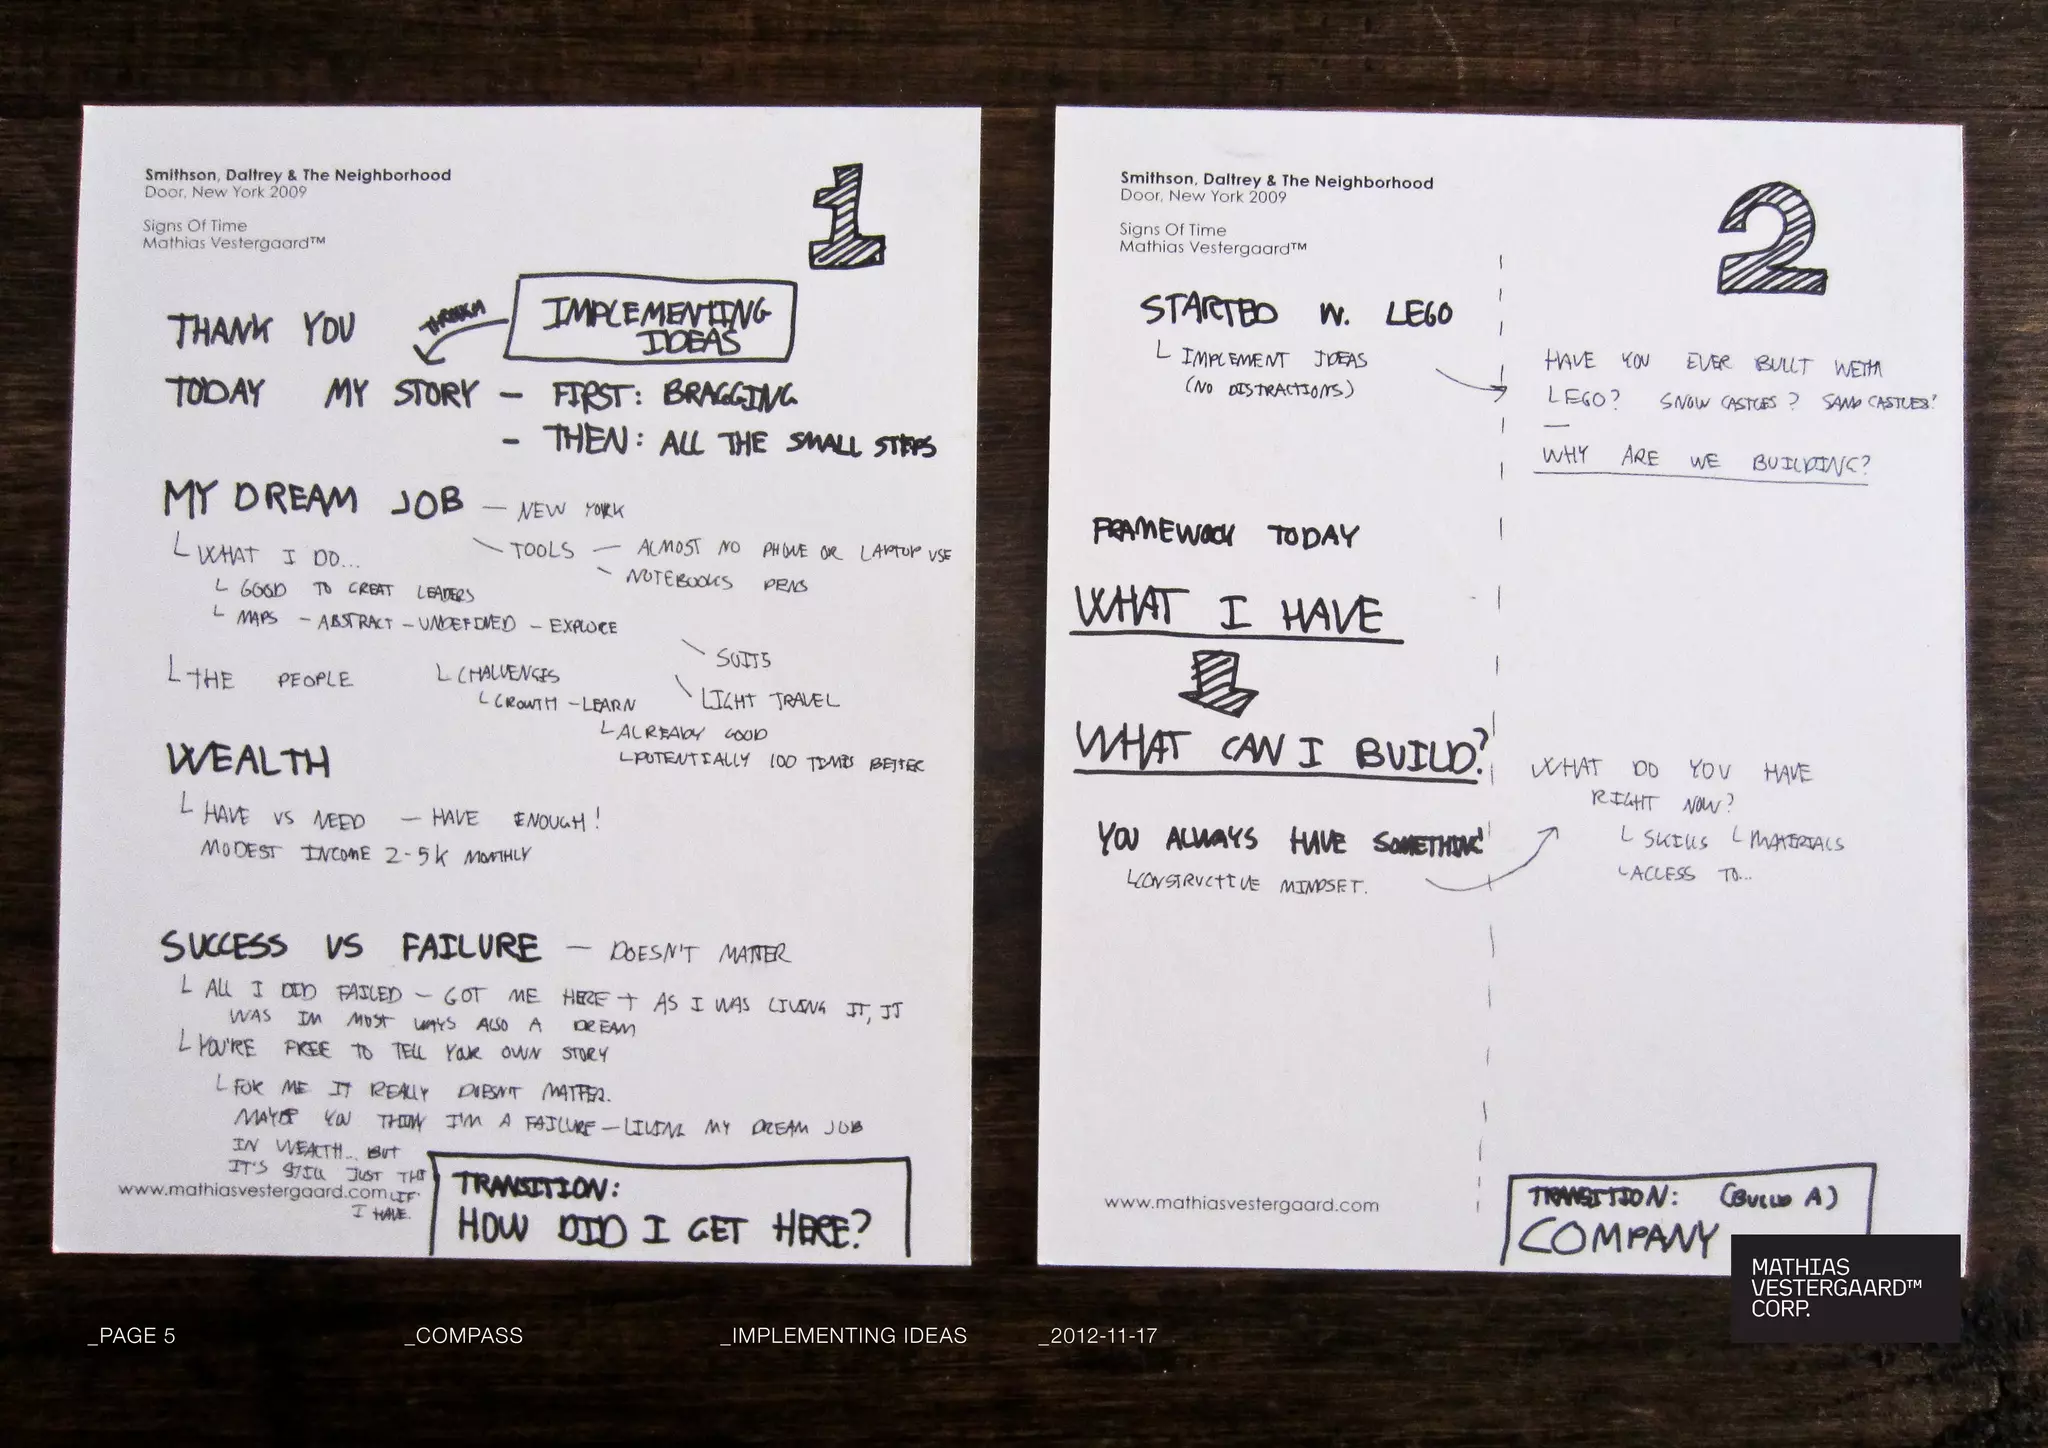 Smithson, Daltrey & The Neighborhood
Door, New York 2009
Signs Of Time
Mathias Vestergaard™
1
THANK YOU
THROUGH
IMPLEMENTING
IDEAS
TODAY MY STORY - FIRST: BRAGGING
- THEN: ALL THE SMALL STEPS
MY DREAM JOB - NEW YORK
WHAT I DO...
TOOLS - ALMOST NO PHONE OR LAPTOP USE
NOTEBOOKS PENS
GOOD TO GREAT LEADERS
MAPS - ABSTRACT - UNDEFINED - EXPLORE
SUITS
THE PEOPLE
CHALLENGES
LIGHT TRAVEL
GROWTH - LEARN
ALREADY GOOD
POTENTIALLY 100 TIMES BETTER
WEALTH
HAVE VS NEED - HAVE ENOUGH!
MODEST INCOME 2-5K MONTHLY
SUCCESS VS FAILURE - DOESN'T MATTER
ALL I DID FAILED - GOT ME HERE + AS I WAS LIVING IT, IT
WAS IN MOST WAYS ALSO A DREAM
YOU'RE FREE TO TELL YOUR OWN STORY
FOR ME IT REALLY DOESN'T MATTER.
MAYBE YOU THINK I'M A FAILURE - LIVING MY DREAM JOB
IN WEALTH... BUT
IT'S STILL JUST THE
LIF
I HAVE.
www.mathiasvestergaard.com
TRANSITION:
HOW DID I GET HERE?
Smithson, Daltrey & The Neighborhood
Door, New York 2009
Signs Of Time
Mathias Vestergaard™
2
STARTED W. LEGO
IMPLEMENT IDEAS
(NO DISTRACTIONS)
HAVE YOU EVER BUILT WITH
LEGO? SNOW CASTLES? SAND CASTLES?
—
WHY ARE WE BUILDING?
FRAMEWORK TODAY
WHAT I HAVE
WHAT CAN I BUILD?
WHAT DO YOU HAVE
RIGHT NOW?
SKILLS MATERIALS
ACCESS TO...
YOU ALWAYS HAVE SOMETHING!
CONSTRUCTIVE MINDSET.
www.mathiasvestergaard.com
TRANSITION: (BUILD A)
COMPANY
MATHIAS
VESTERGAARD™
CORP.
_PAGE 5 _COMPASS _IMPLEMENTING IDEAS _2012-11-17